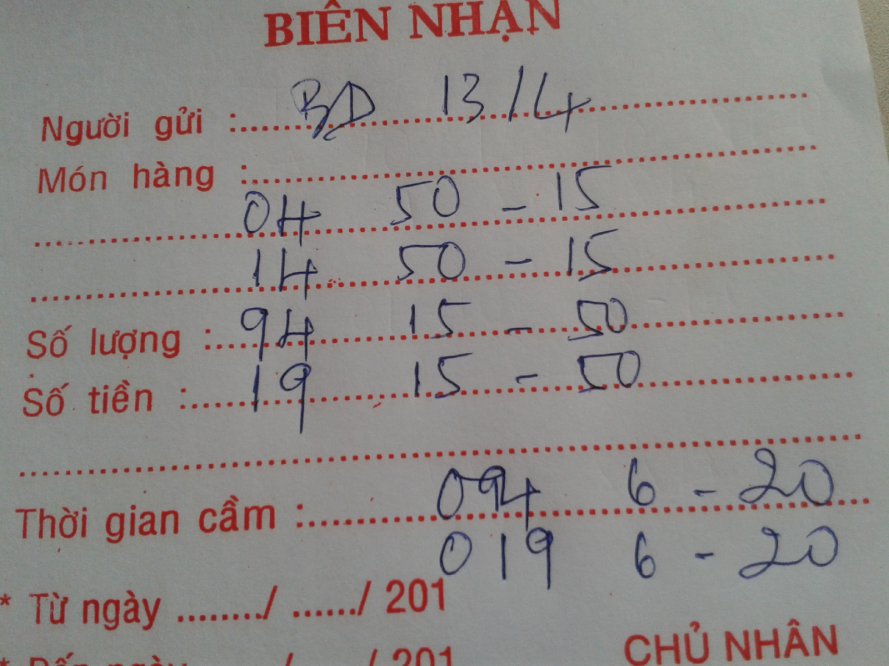 BIÊN NHẬN
Người gửi : BD 13/4
Món hàng :
04 50 - 15
14 50 - 15
Số lượng : 94 15 - 50
Số tiền : 19 15 - 50
Thời gian cầm : 094 6 - 20
019 6 - 20
* Từ ngày ......../ ....../ 201
* Đến ngày / / 201
CHỦ NHÂN